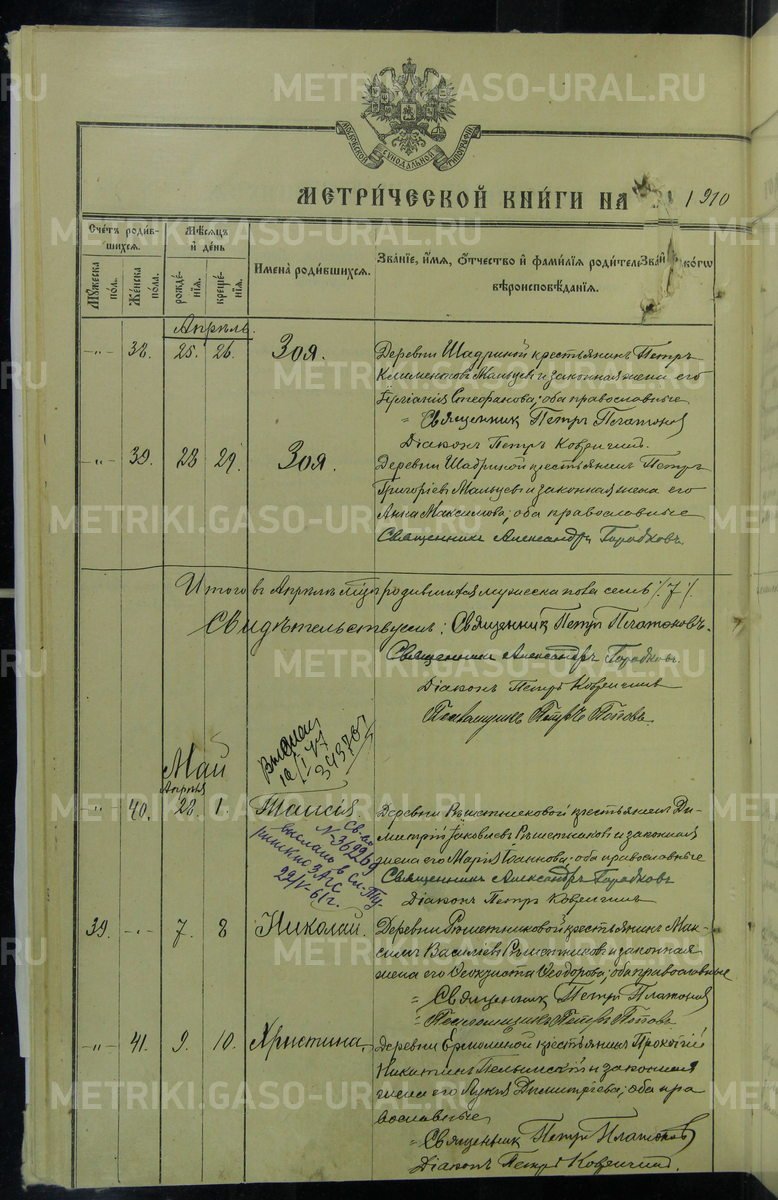 METRIKIGASO-URAL.RU
МОСКОВСКОЙ СИНОДАЛЬНОЙ ТИПОГРАФІИ
МЕТРИЧЕСКОЙ КНИГИ НА 1910
Счетъ родившихся.
Мужеска пол.
Женска пола.
Мѣсяцъ и день
рожденія.
крещенія.
Имена родившихся.
Званіе, имя, отчество и фамилія родителей
вѣроисповѣданія.
Апрѣль.
-„- 38. 25. 26. Зоя.
Деревни Шадриной крестьянинъ Петръ
Климентовъ Мальцевъ и законная жена его
Стефанова; оба православные
Священникъ Петръ Платоновъ
Діаконъ Петръ
-„- 39. 28 29. Зоя.
Деревни Шадриной крестьянинъ Петръ
Григоріевъ Мальцевъ и законная жена его
Анна Максимова; оба православные
Священникъ Александръ Городковъ.
Итого въ Апрѣлѣ м-цѣ родившихся мужеска пола семь /7/.
Свидѣтельствуемъ: Священникъ Петръ Платоновъ.
Священникъ Александръ Городковъ.
Діаконъ Петръ
Псаломщикъ Петръ Поповъ.
Выслан
343767
Май
Апрѣля
-„- 40. 28. 1. Таисія.
Деревни Рѣшетниковой крестьянинъ Ди-
митрій Іаковлевъ Рѣшетниковъ и законная
жена его Марія Іоаннова; оба православные
Священникъ Александръ Городковъ
Діаконъ Петръ
Св-во
N-362269
выслано в
ЗАГС
22/V-61г.
39. -„- 7. 8 Николай.
Деревни Рѣшетниковой крестьянинъ Мак-
симъ Василіевъ Рѣшетниковъ и законная
жена его Ѳеоктиста Ѳеодорова; оба православные
Священникъ Петръ Платоновъ
Псаломщикъ Петръ Поповъ
-„- 41. 9. 10. Христина.
Деревни Ермолиной крестьянинъ Прокопій
Никитинъ Пелымскій и законная
жена его Лукія Димитріева; оба пра
вославные
Священникъ Петръ Платоновъ
Діаконъ Петръ